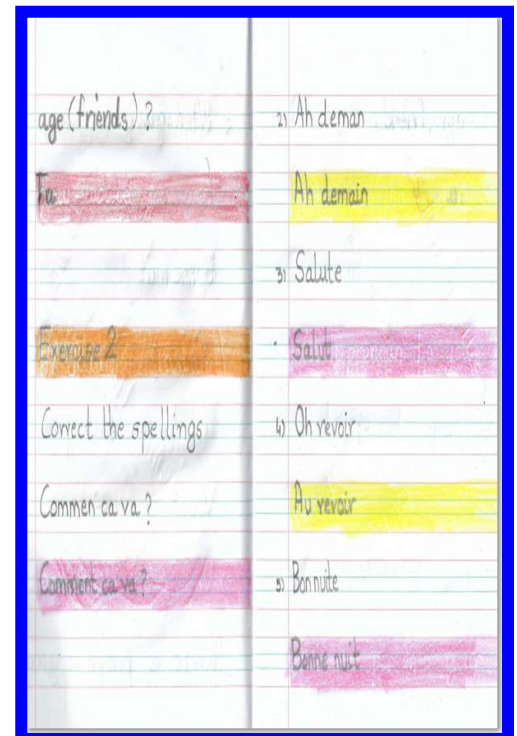 age (friends) ?
Ta
Exercise 2
Correct the spellings
Commen ca va ?
Comment ca va ?
2) Ah deman
Ah demain
3) Salute
Salut
4) Oh revoir
Au revoir
5) Bon nuite
Bonne nuit